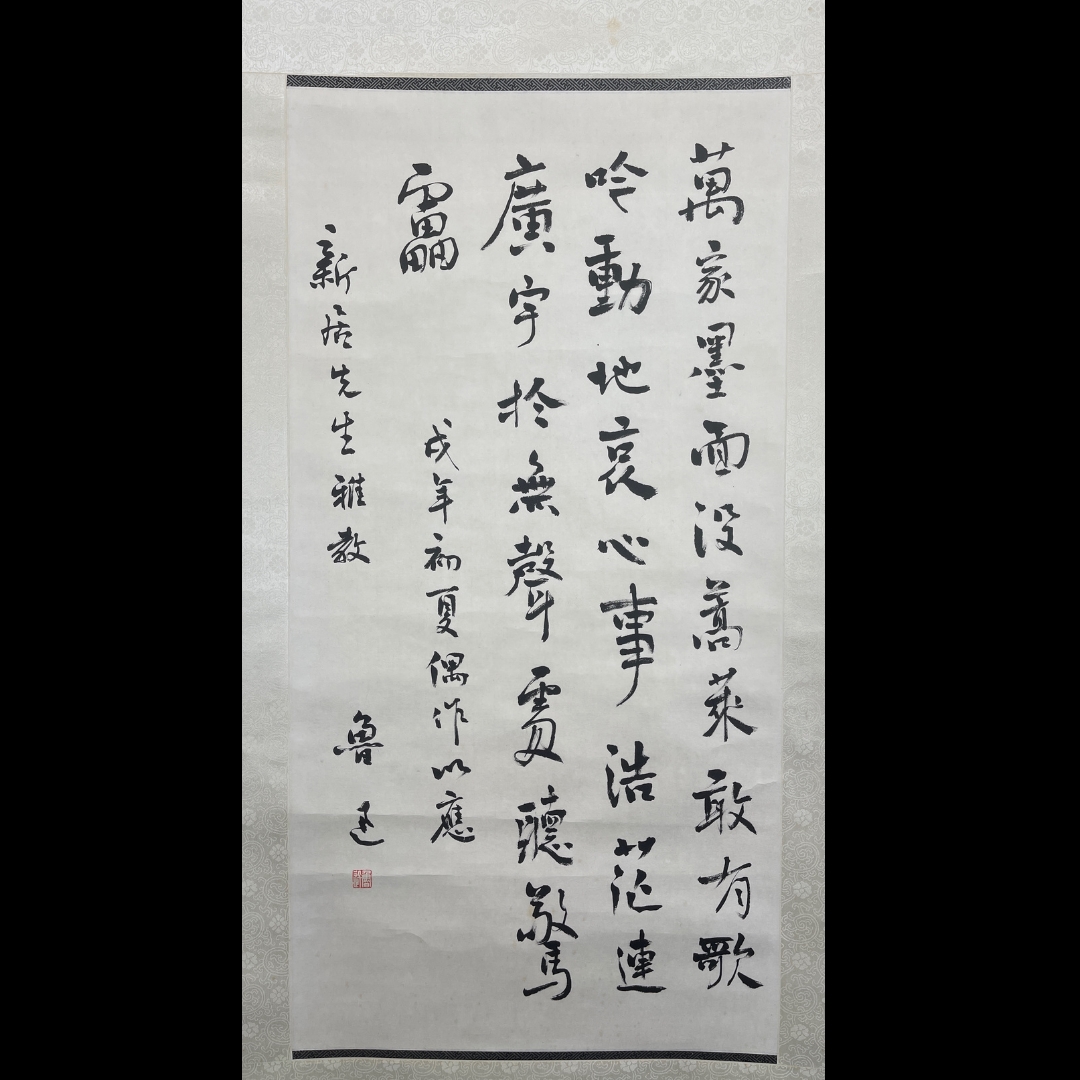 萬家墨面沒蒿萊敢有歌
吟動地哀心事浩茫連
廣宇於無聲處聽驚
靁
戌年初夏偶作以應
新居先生雅教
魯迅